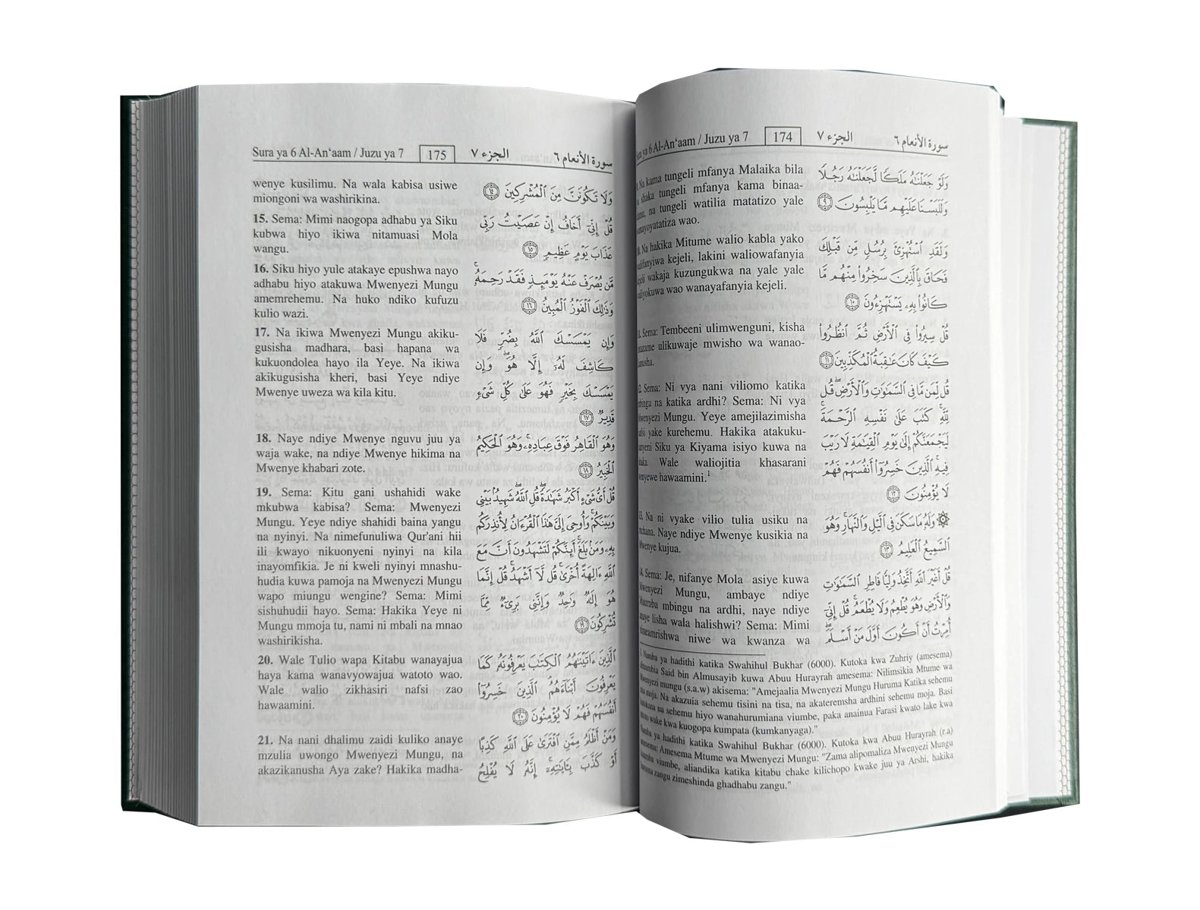 ya 6 Al-An‘aam / Juzu ya 7 174 الجزء ٧ سورة الأنعام ٦
Na kama tungeli mfanya Malaika bila
tungeli mfanya kama binaa-
na tungeli watilia matatizo yale
wao.
Na hakika Mitume walio kabla yako
kejeli, lakini waliowafanyia
wakaja kuzungukwa na yale yale
wao wanayafanyia kejeli.
Sema: Tembeeni ulimwenguni, kisha
ulikuwaje mwisho wa wanao-
Sema: Ni vya nani viliomo katika
na katika ardhi? Sema: Ni vya
Mungu. Yeye amejilazimisha
yake kurehemu. Hakika atakuku-
Siku ya Kiyama isiyo kuwa na
Wale waliojitia khasarani
hawaamini.¹
Na ni vyake vilio tulia usiku na
Naye ndiye Mwenye kusikia na
Mwenye kujua.
Sema: Je, nifanye Mola asiye kuwa
Mungu, ambaye ndiye
mbingu na ardhi, naye ndiye
lisha wala halishwi? Sema: Mimi
niwe wa kwanza wa
وَلَوْ جَعَلْنَٰهُ مَلَكًا لَّجَعَلْنَٰهُ رَجُلًا
وَلَلَبَسْنَا عَلَيْهِم مَّا يَلْبِسُونَ ٩
وَلَقَدِ ٱسْتُهْزِئَ بِرُسُلٍ مِّن قَبْلِكَ
فَحَاقَ بِٱلَّذِينَ سَخِرُوا۟ مِنْهُم مَّا
كَانُوا۟ بِهِۦ يَسْتَهْزِءُونَ ١٠
قُلْ سِيرُوا۟ فِى ٱلْأَرْضِ ثُمَّ ٱنظُرُوا۟
كَيْفَ كَانَ عَٰقِبَةُ ٱلْمُكَذِّبِينَ ١١
قُل لِّمَن مَّا فِى ٱلسَّمَٰوَٰتِ وَٱلْأَرْضِ ۖ قُل
لِّلَّهِ ۚ كَتَبَ عَلَىٰ نَفْسِهِ ٱلرَّحْمَةَ ۚ
لَيَجْمَعَنَّكُمْ إِلَىٰ يَوْمِ ٱلْقِيَٰمَةِ لَا رَيْبَ
فِيهِ ۚ ٱلَّذِينَ خَسِرُوٓا۟ أَنفُسَهُمْ فَهُمْ
لَا يُؤْمِنُونَ ١٢
۞ وَلَهُۥ مَا سَكَنَ فِى ٱلَّيْلِ وَٱلنَّهَارِ ۚ وَهُوَ
ٱلسَّمِيعُ ٱلْعَلِيمُ ١٣
قُلْ أَغَيْرَ ٱللَّهِ أَتَّخِذُ وَلِيًّا فَاطِرِ ٱلسَّمَٰوَٰتِ
وَٱلْأَرْضِ وَهُوَ يُطْعِمُ وَلَا يُطْعَمُ ۗ قُلْ إِنِّىٓ
أُمِرْتُ أَنْ أَكُونَ أَوَّلَ مَنْ أَسْلَمَ ۖ
Namba ya hadithi katika Swahihul Bukhar (6000). Kutoka kwa Zuhriy (amesema)
Said bin Almusayib kuwa Abuu Hurayrah amesema: Nilimsikia Mtume wa
Mwenyezi mungu (s.a.w) akisema: "Amejaalia Mwenyezi Mungu Huruma Katika sehemu
moja. Na akazuia sehemu tisini na tisa, na akateremsha ardhini sehemu moja. Basi
na sehemu hiyo wanahurumiana viumbe, paka anainua Farasi kwato lake kwa
wake kwa kuogopa kumpata (kumkanyaga)."
ya hadithi katika Swahihul Bukhar (6000). Kutoka kwa Abuu Hurayrah (r.a)
Amesema Mtume wa Mwenyezi Mungu: "Zama alipomaliza Mwenyezi Mungu
viumbe, aliandika katika kitabu chake kilichopo kwake juu ya Arshi, hakika
zangu zimeshinda ghadhabu zangu."
Sura ya 6 Al-An‘aam / Juzu ya 7 175 الجزء ٧ سورة الأنعام ٦
wenye kusilimu. Na wala kabisa usiwe
miongoni wa washirikina.
15. Sema: Mimi naogopa adhabu ya Siku
kubwa hiyo ikiwa nitamuasi Mola
wangu.
16. Siku hiyo yule atakaye epushwa nayo
adhabu hiyo atakuwa Mwenyezi Mungu
amemrehemu. Na huko ndiko kufuzu
kulio wazi.
17. Na ikiwa Mwenyezi Mungu akiku-
gusisha madhara, basi hapana wa
kukuondolea hayo ila Yeye. Na ikiwa
akikugusisha kheri, basi Yeye ndiye
Mwenye uweza wa kila kitu.
18. Naye ndiye Mwenye nguvu juu ya
waja wake, na ndiye Mwenye hikima na
Mwenye khabari zote.
19. Sema: Kitu gani ushahidi wake
mkubwa kabisa? Sema: Mwenyezi
Mungu. Yeye ndiye shahidi baina yangu
na nyinyi. Na nimefunuliwa Qur'ani hii
ili kwayo nikuonyeni nyinyi na kila
inayomfikia. Je ni kweli nyinyi mnashu-
hudia kuwa pamoja na Mwenyezi Mungu
wapo miungu wengine? Sema: Mimi
sishuhudii hayo. Sema: Hakika Yeye ni
Mungu mmoja tu, nami ni mbali na mnao
washirikisha.
20. Wale Tulio wapa Kitabu wanayajua
haya kama wanavyowajua watoto wao.
Wale walio zikhasiri nafsi zao
hawaamini.
21. Na nani dhalimu zaidi kuliko anaye
mzulia uwongo Mwenyezi Mungu, na
akazikanusha Aya zake? Hakika madha-
وَلَا تَكُونَنَّ مِنَ ٱلْمُشْرِكِينَ ١٤
قُلْ إِنِّىٓ أَخَافُ إِنْ عَصَيْتُ رَبِّى
عَذَابَ يَوْمٍ عَظِيمٍ ١٥
مَّن يُصْرَفْ عَنْهُ يَوْمَئِذٍ فَقَدْ رَحِمَهُۥ ۚ
وَذَٰلِكَ ٱلْفَوْزُ ٱلْمُبِينُ ١٦
وَإِن يَمْسَسْكَ ٱللَّهُ بِضُرٍّ فَلَا
كَاشِفَ لَهُۥٓ إِلَّا هُوَ ۖ وَإِن
يَمْسَسْكَ بِخَيْرٍ فَهُوَ عَلَىٰ كُلِّ شَىْءٍ
قَدِيرٌ ١٧
وَهُوَ ٱلْقَاهِرُ فَوْقَ عِبَادِهِۦ ۚ وَهُوَ ٱلْحَكِيمُ
ٱلْخَبِيرُ ١٨
قُلْ أَىُّ شَىْءٍ أَكْبَرُ شَهَٰدَةً ۖ قُلِ ٱللَّهُ ۖ شَهِيدٌۢ بَيْنِى
وَبَيْنَكُمْ ۚ وَأُوحِىَ إِلَىَّ هَٰذَا ٱلْقُرْءَانُ لِأُنذِرَكُم
بِهِۦ وَمَنۢ بَلَغَ ۚ أَئِنَّكُمْ لَتَشْهَدُونَ أَنَّ مَعَ
ٱللَّهِ ءَالِهَةً أُخْرَىٰ ۚ قُل لَّآ أَشْهَدُ ۚ قُلْ إِنَّمَا
هُوَ إِلَٰهٌ وَٰحِدٌ وَإِنَّنِى بَرِىٓءٌ مِّمَّا
تُشْرِكُونَ ١٩
ٱلَّذِينَ ءَاتَيْنَٰهُمُ ٱلْكِتَٰبَ يَعْرِفُونَهُۥ كَمَا
يَعْرِفُونَ أَبْنَآءَهُمُ ۘ ٱلَّذِينَ خَسِرُوٓا۟
أَنفُسَهُمْ فَهُمْ لَا يُؤْمِنُونَ ٢٠
وَمَنْ أَظْلَمُ مِمَّنِ ٱفْتَرَىٰ عَلَى ٱللَّهِ كَذِبًا
أَوْ كَذَّبَ بِـَٔايَٰتِهِۦٓ ۗ إِنَّهُۥ لَا يُفْلِحُ